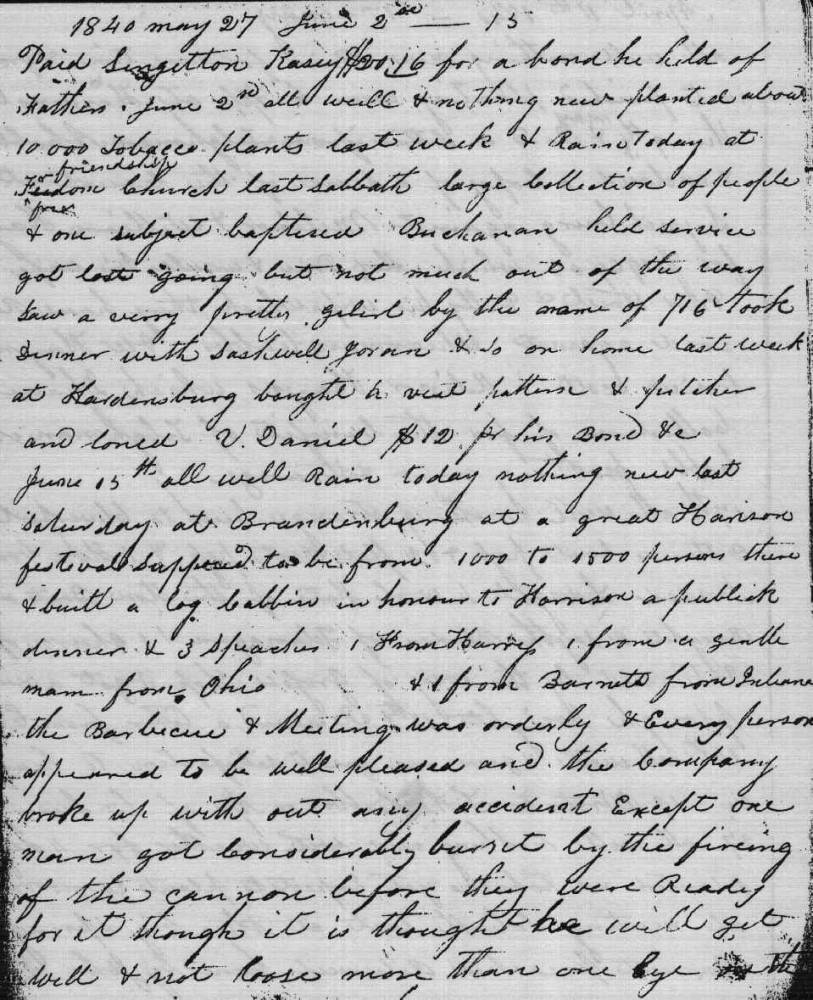 1840 may 27 June 2nd — 15
Paid Singelton Kasey $20.16 for a bond he held of
Fathers. June 2nd all well & nothing new planted about
10.000 Tobacco plants last week & Rain today at
friendship
Church last Sabbath large Collection of people
free
& one subject baptised Buchanan held service
got lost going but not much out of the way
Saw a verry pretty gelirl by the name of 716 took
Dinner with Joran & So on home last week
at Hardensburg bought a vest pattern & pitcher
and loned V. Daniel $12 pr his Bond &c
June 15th all well Rain today nothing new last
Saturday at Brandenburg at a great Harison
festival supposed to be from 1000 to 1500 persons there
& built a log Cabbin in honour to Harrison a publick
dinner & 3 Speaches 1 From Harris 1 from a gentle
mam from Ohio & 1 from Barnett from Indiana
the Barbecue & Meeting was orderly & Every person
appeared to be well pleased and the Company
broke up with out any accident Except one
man got Considerably burnt by the fireing
of the cannon before they were Ready
for it though it is thought he will get
well & not loose more than one Eye